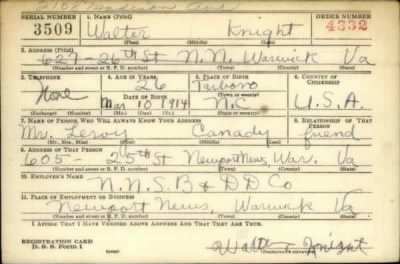 2108 Madison Ave
SERIAL NUMBER 1. NAME (Print) ORDER NUMBER
3509 Walter Knight 4332
(First) (Middle) (Last)
2. ADDRESS (Print)
627-26th St N.N. Warwick Va
(Number and street or R. F. D. number) (Town) (County) (State)
3. TELEPHONE 4. AGE IN YEARS 5. PLACE OF BIRTH 6. COUNTRY OF CITIZENSHIP
None 26 Tarboro
DATE OF BIRTH (Town or county)
Mar 10 1914 N.C. U.S.A.
(Exchange) (Number) (Mo.) (Day) (Yr.) (State or country)
7. NAME OF PERSON WHO WILL ALWAYS KNOW YOUR ADDRESS 8. RELATIONSHIP OF THAT PERSON
Mr. Leroy Canady friend
(Mr., Mrs., Miss) (First) (Middle) (Last)
9. ADDRESS OF THAT PERSON
605-25th St Newport News, War. Va
(Number and street or R. F. D. number) (Town) (County) (State)
10. EMPLOYER'S NAME
N.N.S.B & D D Co
11. PLACE OF EMPLOYMENT OR BUSINESS
Newport News Warwick Va
(Number and street or R. F. D. number) (Town) (County) (State)
I AFFIRM THAT I HAVE VERIFIED ABOVE ANSWERS AND THAT THEY ARE TRUE.
REGISTRATION CARD
D. S. S. Form 1 Walter Knight
(Registrant's signature)